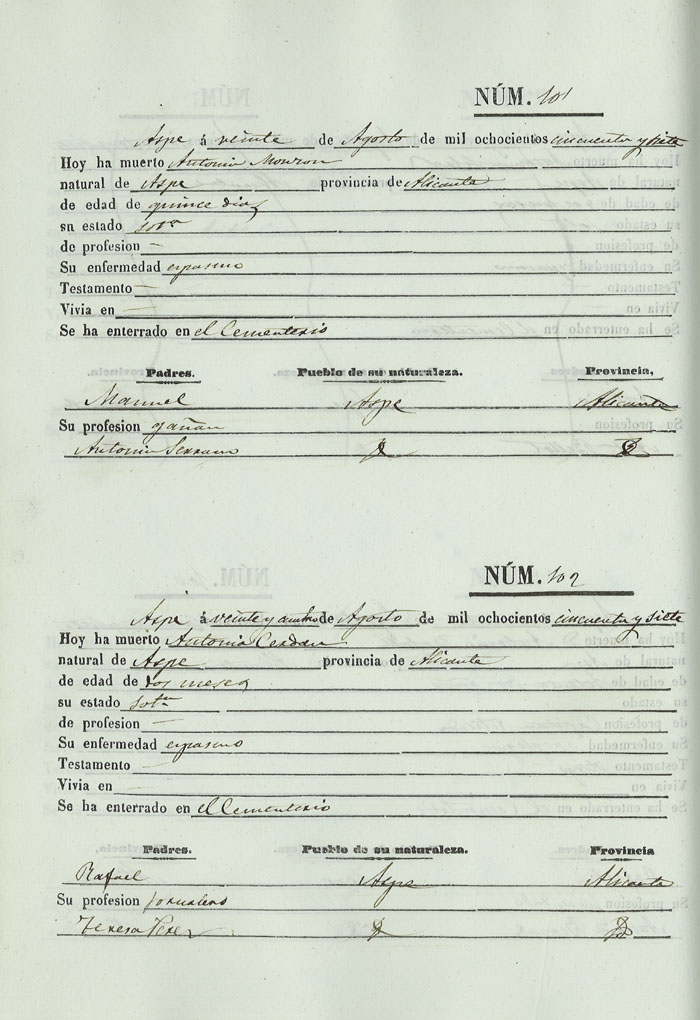 NÚM. 101
Aspe á veinte de Agosto de mil ochocientos cincuenta y siete
Hoy ha muerto Antonia Monzon
natural de Aspe provincia de Alicante
de edad de quince dias
sn estado solt.ra
de profesion —
Su enfermedad espasmo
Testamento —
Vivia en —
Se ha enterrado en el Cementerio
Padres. Pueblo de su naturaleza. Provincia,
Manuel Aspe Alicante
Su profesion gañan
Antonia Serrano
NÚM. 102
Aspe á veinte y cuatro de Agosto de mil ochocientos cincuenta y siete
Hoy ha muerto Antonia Cerdan
natural de Aspe provincia de Alicante
de edad de dos meses
su estado solt.ra
de profesion —
Su enfermedad espasmo
Testamento
Vivia en —
Se ha enterrado en el Cementerio
Padres. Pueblo de su naturaleza. Provincia
Rafael Aspe Alicante
Su profesion jornalero
Teresa Perez